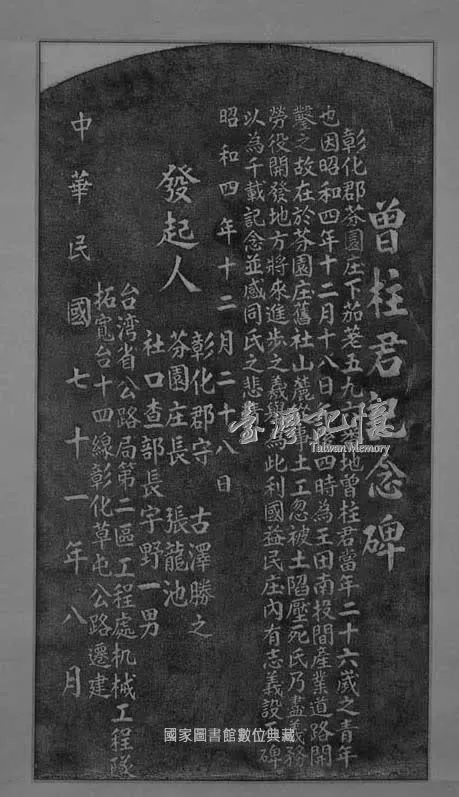 曾柱君紀念碑
彰化郡芬園庄下茄荖五九番地曾柱君當年二十六歲之青年
也因昭和四年十二月十八日後四時為王田南投間產業道路開
鑿之故在於芬園庄舊社山麓 事土工忽被土陷壓死氏乃盡義務
勞役開發地方將來進步之義舉為此利國益民庄內有志義設 碑
以為千載記念並感同氏之悲
昭和四年十二月二十八日
發起人
彰化郡守 古澤勝之
芬園庄長 張龍池
社口查部長宇野一男
台湾省公路局第二區工程處机械工程隊
拓寬台十四線彰化草屯公路遷建
中華民國七十一年八月
臺灣記憶
Taiwan Memory
國家圖書館數位典藏